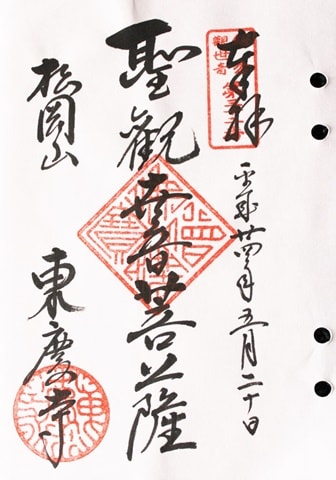 奉拝
平成廿四年五月二十日
聖觀世音菩薩
松岡山
東慶寺